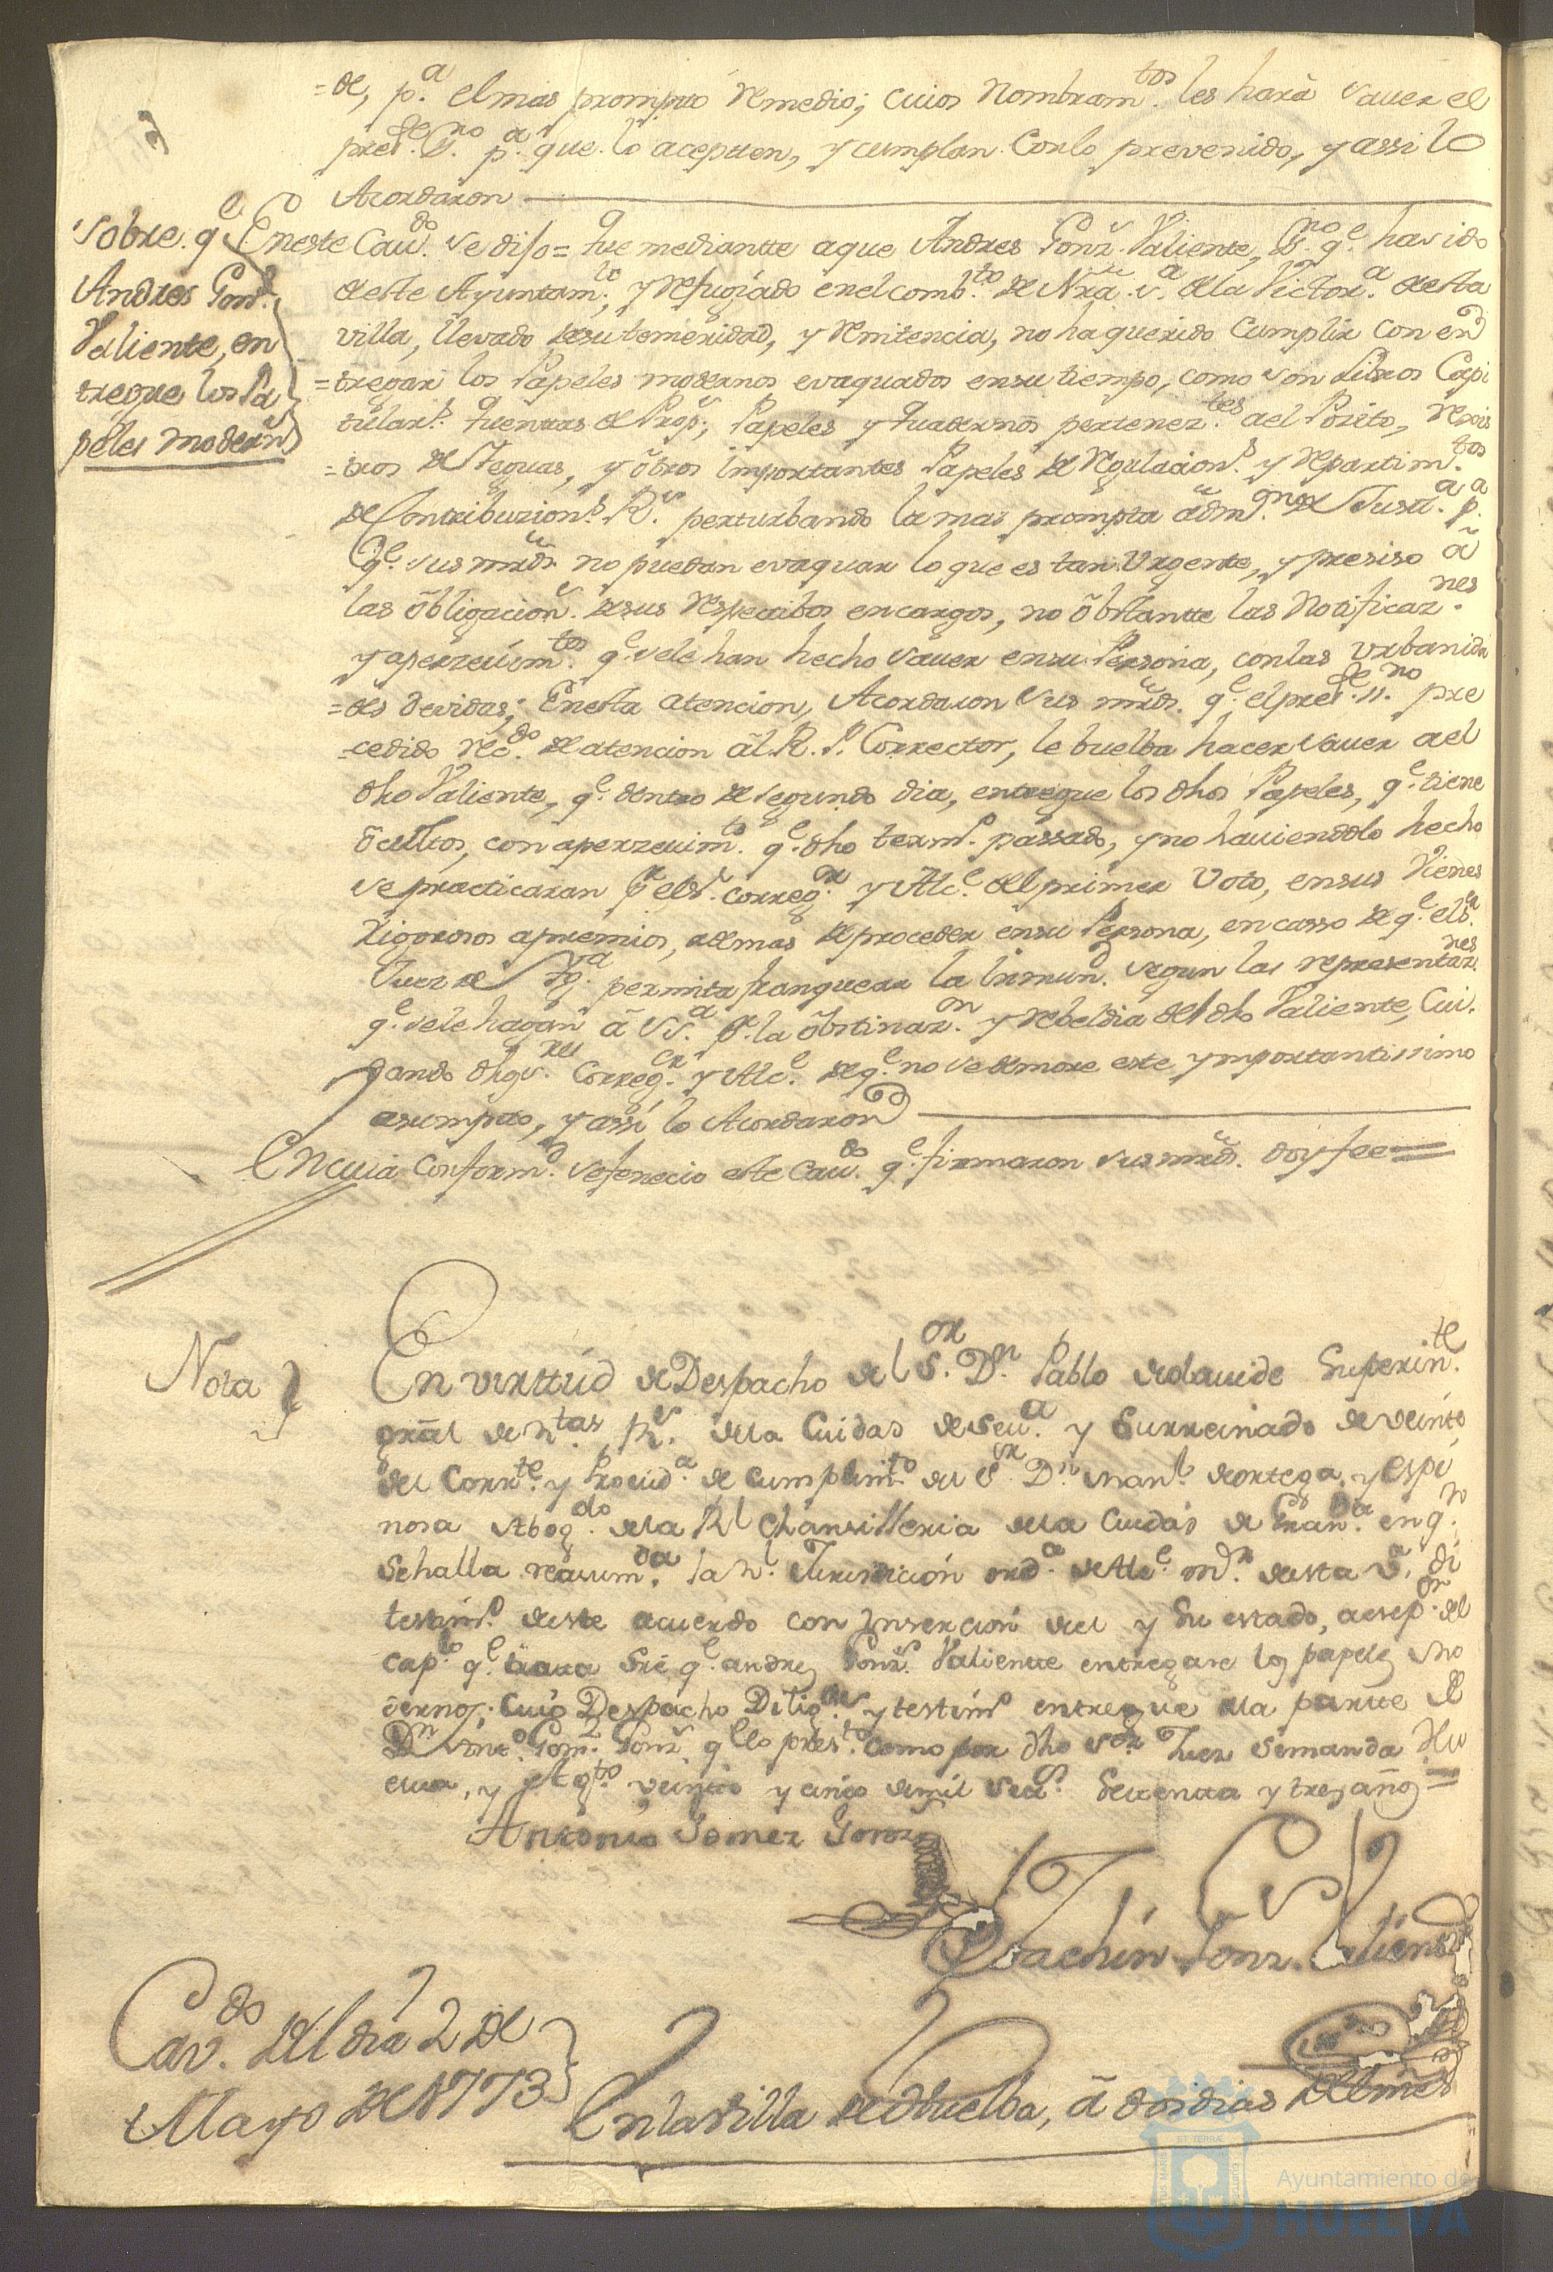 =de, p.ª el mas prompto remedio; cuios Nombram.tos les hará sauer el
pres.te S.no p.ª que lo acepten, y cumplan con lo prevenido, y assi lo
Acordaron
Sobre q.e
Andres Gonz.s
Valiente, en
tregue los Pa
peles modern.s
En este Cau.do se dijo = Que mediantte a que Andres Gonz.s Valiente, S.no q.e ha sido
de este Ayuntam.to, y refugiado en el comb.to de Nra. S.ª de la Victor.ª de esta
villa, llevado de su temeridad, y remitencia, no ha querido cumplir con en
=tregar los Papeles modernos evaquados en su tiempo, como son Libros Capi
tular.s Quentas de Prop.s, Papeles y Quadernos pertenez.tes a el Posito, Rexis
=tros de Yeguas, y ótros importantes Papeles de regulacion.s y repartim.tos
de Contribuzion.s R.s perturbando la mas prompta ádm.on de Just.ª p.ª
q.e sus mrds. no puedan evaquar lo que es tan Urgente, y presiso á
las óbligacion.s de sus respectibos encargos, no óbstantte las Notificaz.nes
y aperzeuim.tos q.e se le han hecho sauer en su Persona, con las urbanida
=des devidas; En esta atencion, Acordaron sus mrds. q.e el pres.te S.no pre
=cedido rec.do de atencion ál R. P. Corrector, le buelba hacer sauer a el
dho Valiente, q.e dentro de segundo dia, entregue los dhos Papeles, q.e tiene
ócultos, con aperzeuim.to q.e dho term.o passado, y no hauiendolo hecho
se practicaran p.r el S.r correg.or y Alc.e del primer Voto, en sus Vienes
rigorosos apremios, ademas de proceder en su Persona, en casso de q.e el S.r
Juez de Ygª. permita franquear la Inmun.d segun las representaz.nes
q.e se le hagan á S.S.ª p.r la óbstinaz.on y rebeldia del dho Valiente, Cui.
dando dhos S.res Correg.or y Alc.e de q.e no se demore este ymportantissimo
asumpto, y assi lo Acordaron
En cuia conform.d se fenecio este Cau.do q.e firmaron sus mrds. doy fee=
Nota
En virttud de Despacho del S.or D.n Pablo de Olauide Superin.te
gral de R.tas R.s de la Cuidad de Seu.ª y Su Reinado de veinte
del Corr.te y Prouid.ª de cumplim.to del S.or D.n Man.l de ortega, y Espi
nosa Abog.do de la R.l Chansilleria de la Cuidad de Gran.da en q.n
se halla reasum.da la R.l Jurisdicion ord.ª de Alc.e m.r de esta V.ª di
testim.o de este acuerdo con Insercion del y Su estado, a esep.on del
cap.o q.e trata sre q.e andres Gonz.s Valiente entregase los papeles mo
dernos; Cuio Despacho Dilig.as y testim.o entregue a la parte de
D.n Ant.o Gom.z Gonz.s q.e lo pres.to como por dho S.or Juez se manda Hu
elua, y Ag.to veinte y cinco de mil Setes. Setenta y tres años=
Antonio Gomez Gonz.s
Joachin Gonz. Valiente
Cav.do del dia 2 de
Mayo de 1773
En la villa de Huelba, á dos dias del mes
Ayuntamiento de
HUELVA